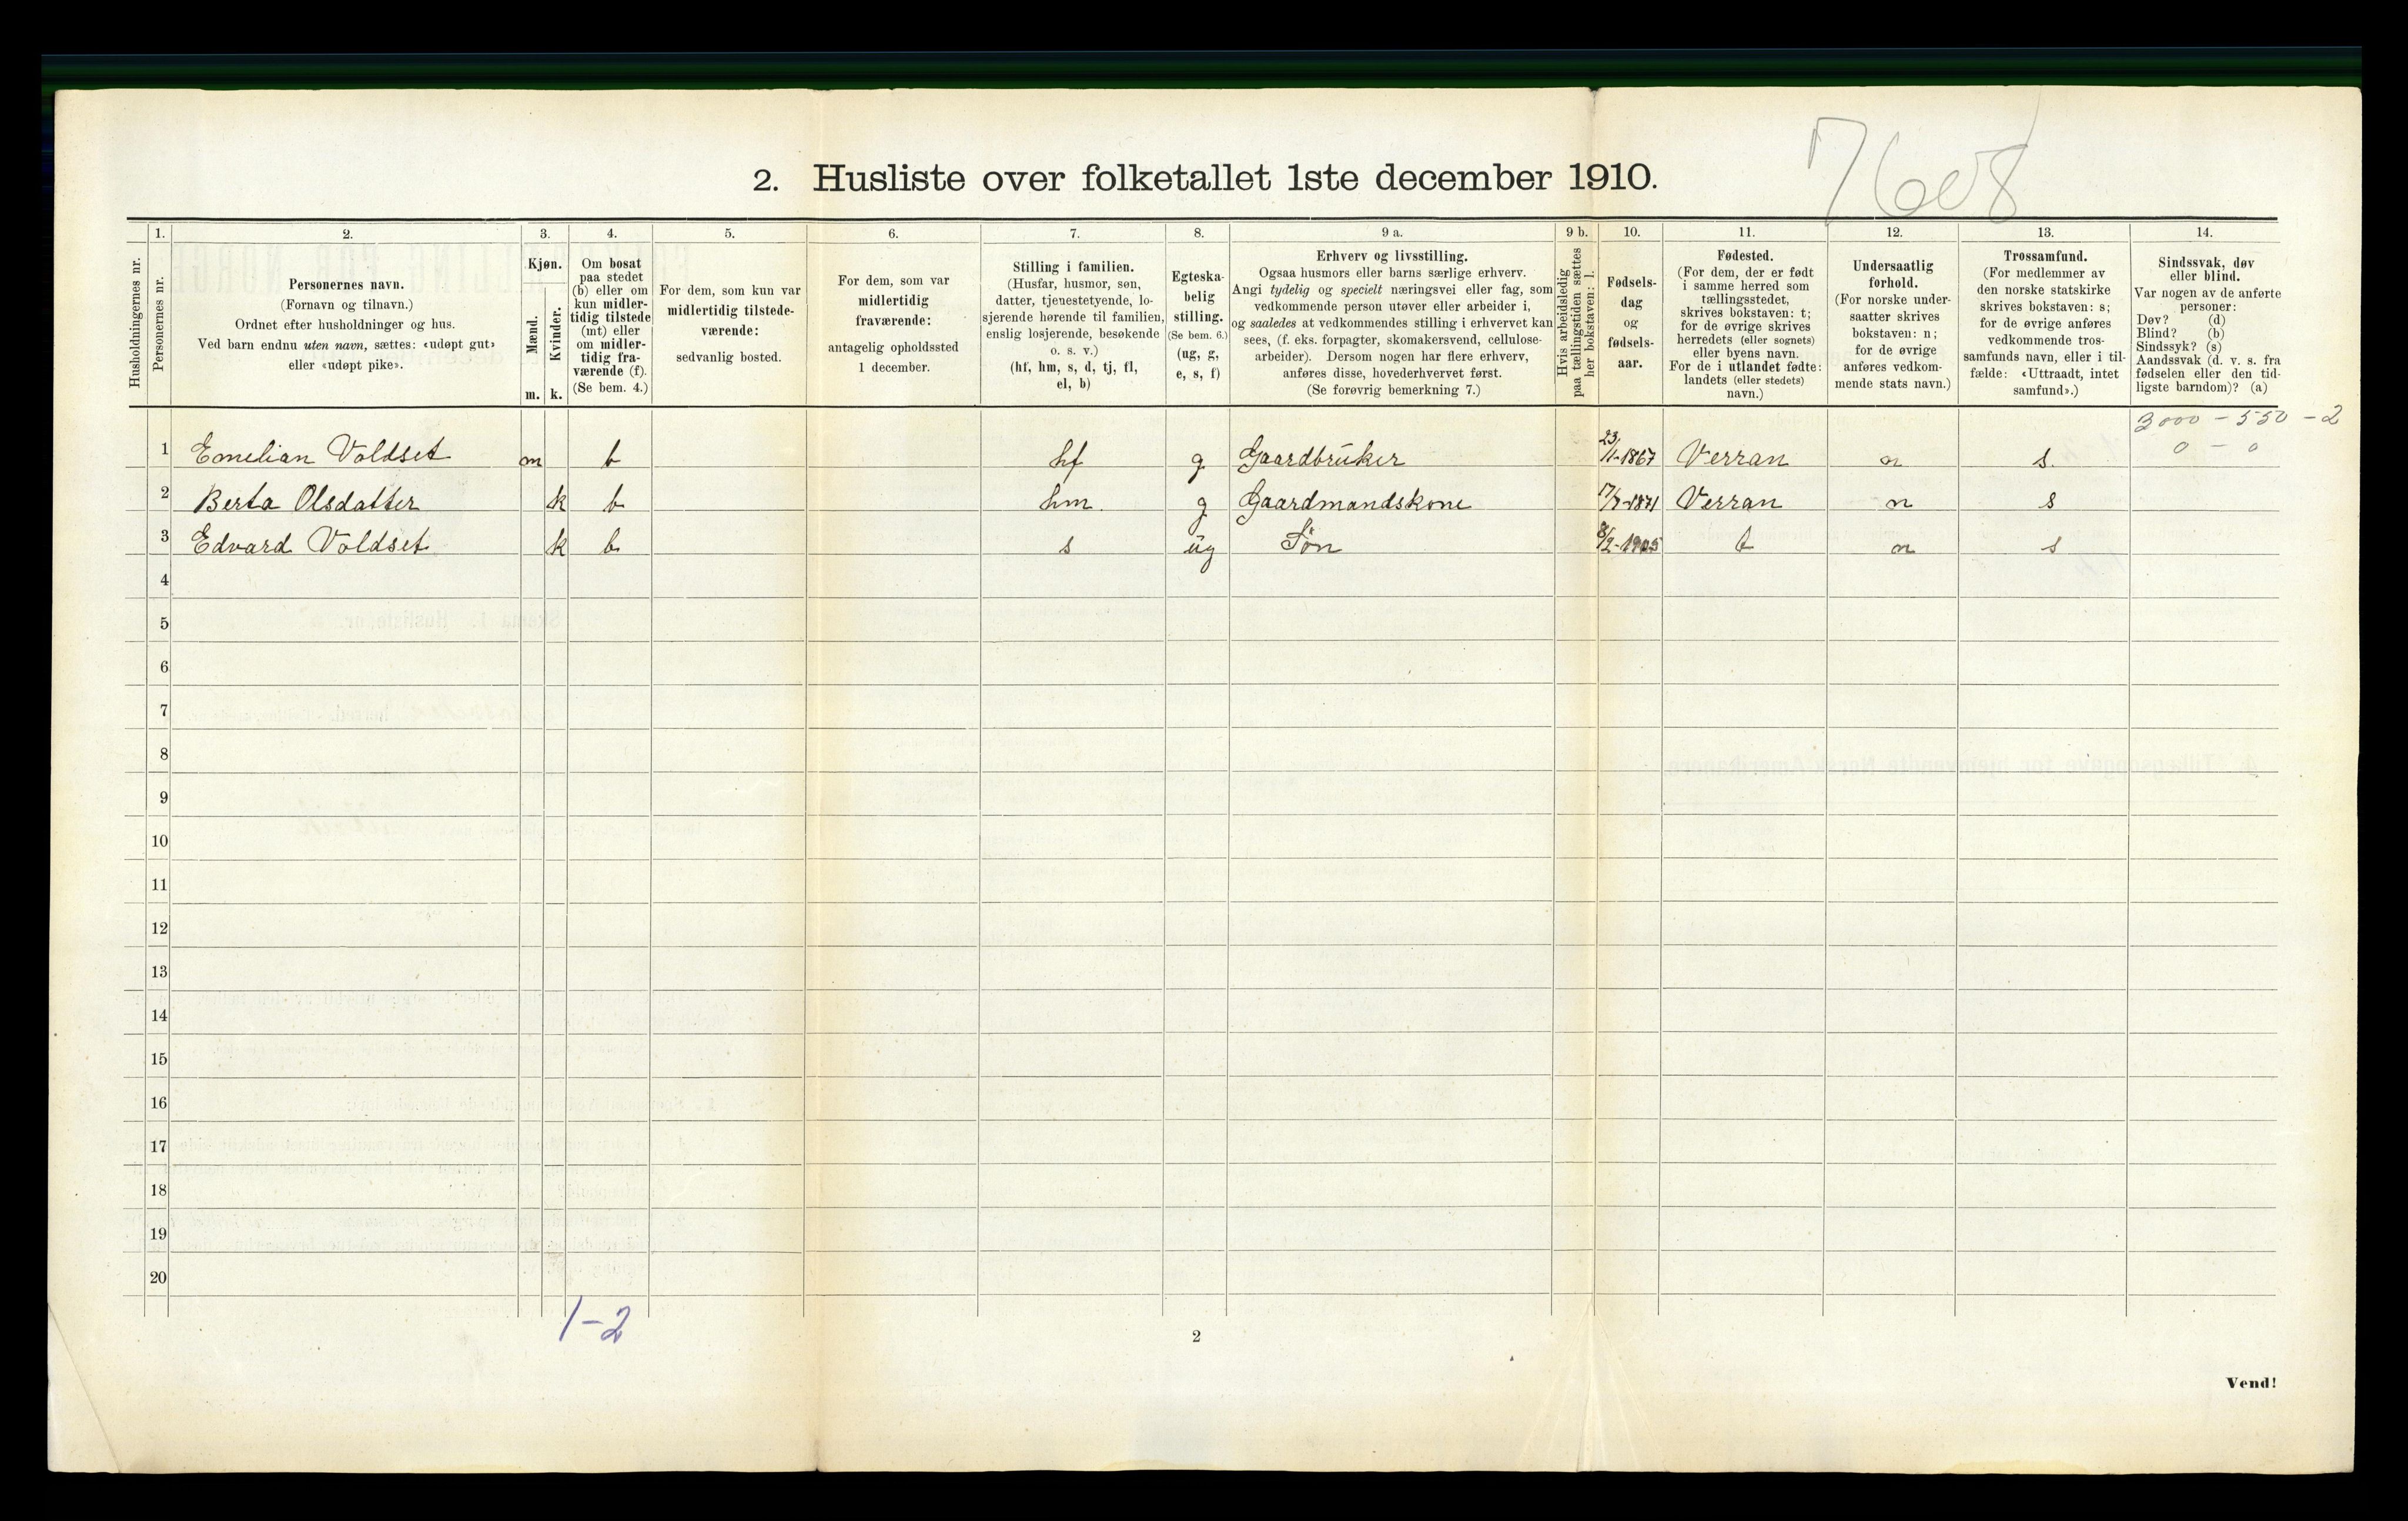 7608
2. Husliste over folketallet 1ste december 1910.
Husholdningernes nr.
1.
Personernes nr.
2.
Personernes navn.
(Fornavn og tilnavn.)
Ordnet efter husholdninger og hus.
Ved barn endnu uten navn, sættes: «udøpt gut»
eller «udøpt pike».
3.
Kjøn.
Mænd.
Kvinder.
m. k.
4.
Om bosat
paa stedet
(b) eller om
kun midler-
tidig tilstede
(mt) eller
om midler-
tidig fra-
værende (f).
(Se bem. 4.)
5.
For dem, som kun var
midlertidig tilstede-
værende:
sedvanlig bosted.
6.
For dem, som var
midlertidig
fraværende:
antagelig opholdssted
1 december.
7.
Stilling i familien.
(Husfar, husmor, søn,
datter, tjenestetyende, lo-
sjerende hørende til familien,
enslig losjerende, besøkende
o. s. v.)
(hf, hm, s, d, tj, fl,
el, b)
8.
Egteska-
belig
stilling.
(Se bem. 6.)
(ug, g,
e, s, f)
9 a.
Erhverv og livsstilling.
Ogsaa husmors eller barns særlige erhverv.
Angi tydelig og specielt næringsvei eller fag, som
vedkommende person utøver eller arbeider i,
og saaledes at vedkommendes stilling i erhvervet kan
sees, (f. eks. forpagter, skomakersvend, cellulose-
arbeider). Dersom nogen har flere erhverv,
anføres disse, hovederhvervet først.
(Se forøvrig bemerkning 7.)
9 b.
Hvis arbeidsledig
paa tællingstiden sættes
her bokstaven: l.
10.
Fødsels-
dag
og
fødsels-
aar.
11.
Fødested.
(For dem, der er født
i samme herred som
tællingsstedet,
skrives bokstaven: t;
for de øvrige skrives
herredets (eller sognets)
eller byens navn.
For de i utlandet fødte:
landets (eller stedets)
navn.)
12.
Undersaatlig
forhold.
(For norske under-
saatter skrives
bokstaven: n;
for de øvrige
anføres vedkom-
mende stats navn.)
13.
Trossamfund.
(For medlemmer av
den norske statskirke
skrives bokstaven: s;
for de øvrige anføres
vedkommende tros-
samfunds navn, eller i til-
fælde: «Uttraadt, intet
samfund».)
14.
Sindssvak, døv
eller blind.
Var nogen av de anførte
personer:
Døv? (d)
Blind? (b)
Sindssyk? (s)
Aandssvak (d. v. s. fra
fødselen eller den tid-
ligste barndom)? (a)
3000 - 550 - 2
0 - 0
1 Emelian Voldset m b hf g Gaardbruker 23/1-1867 Verran n s.
2 Berta Olsdatter k b hm. g Gaardmandskone Verran n s
3 Edvard Voldset k b s ug Søn 8/2-1905 t n s
4
5
6
7
8
9
10
11
12
13
14
15
16
17
18
19
20
1-2
2
Vend!